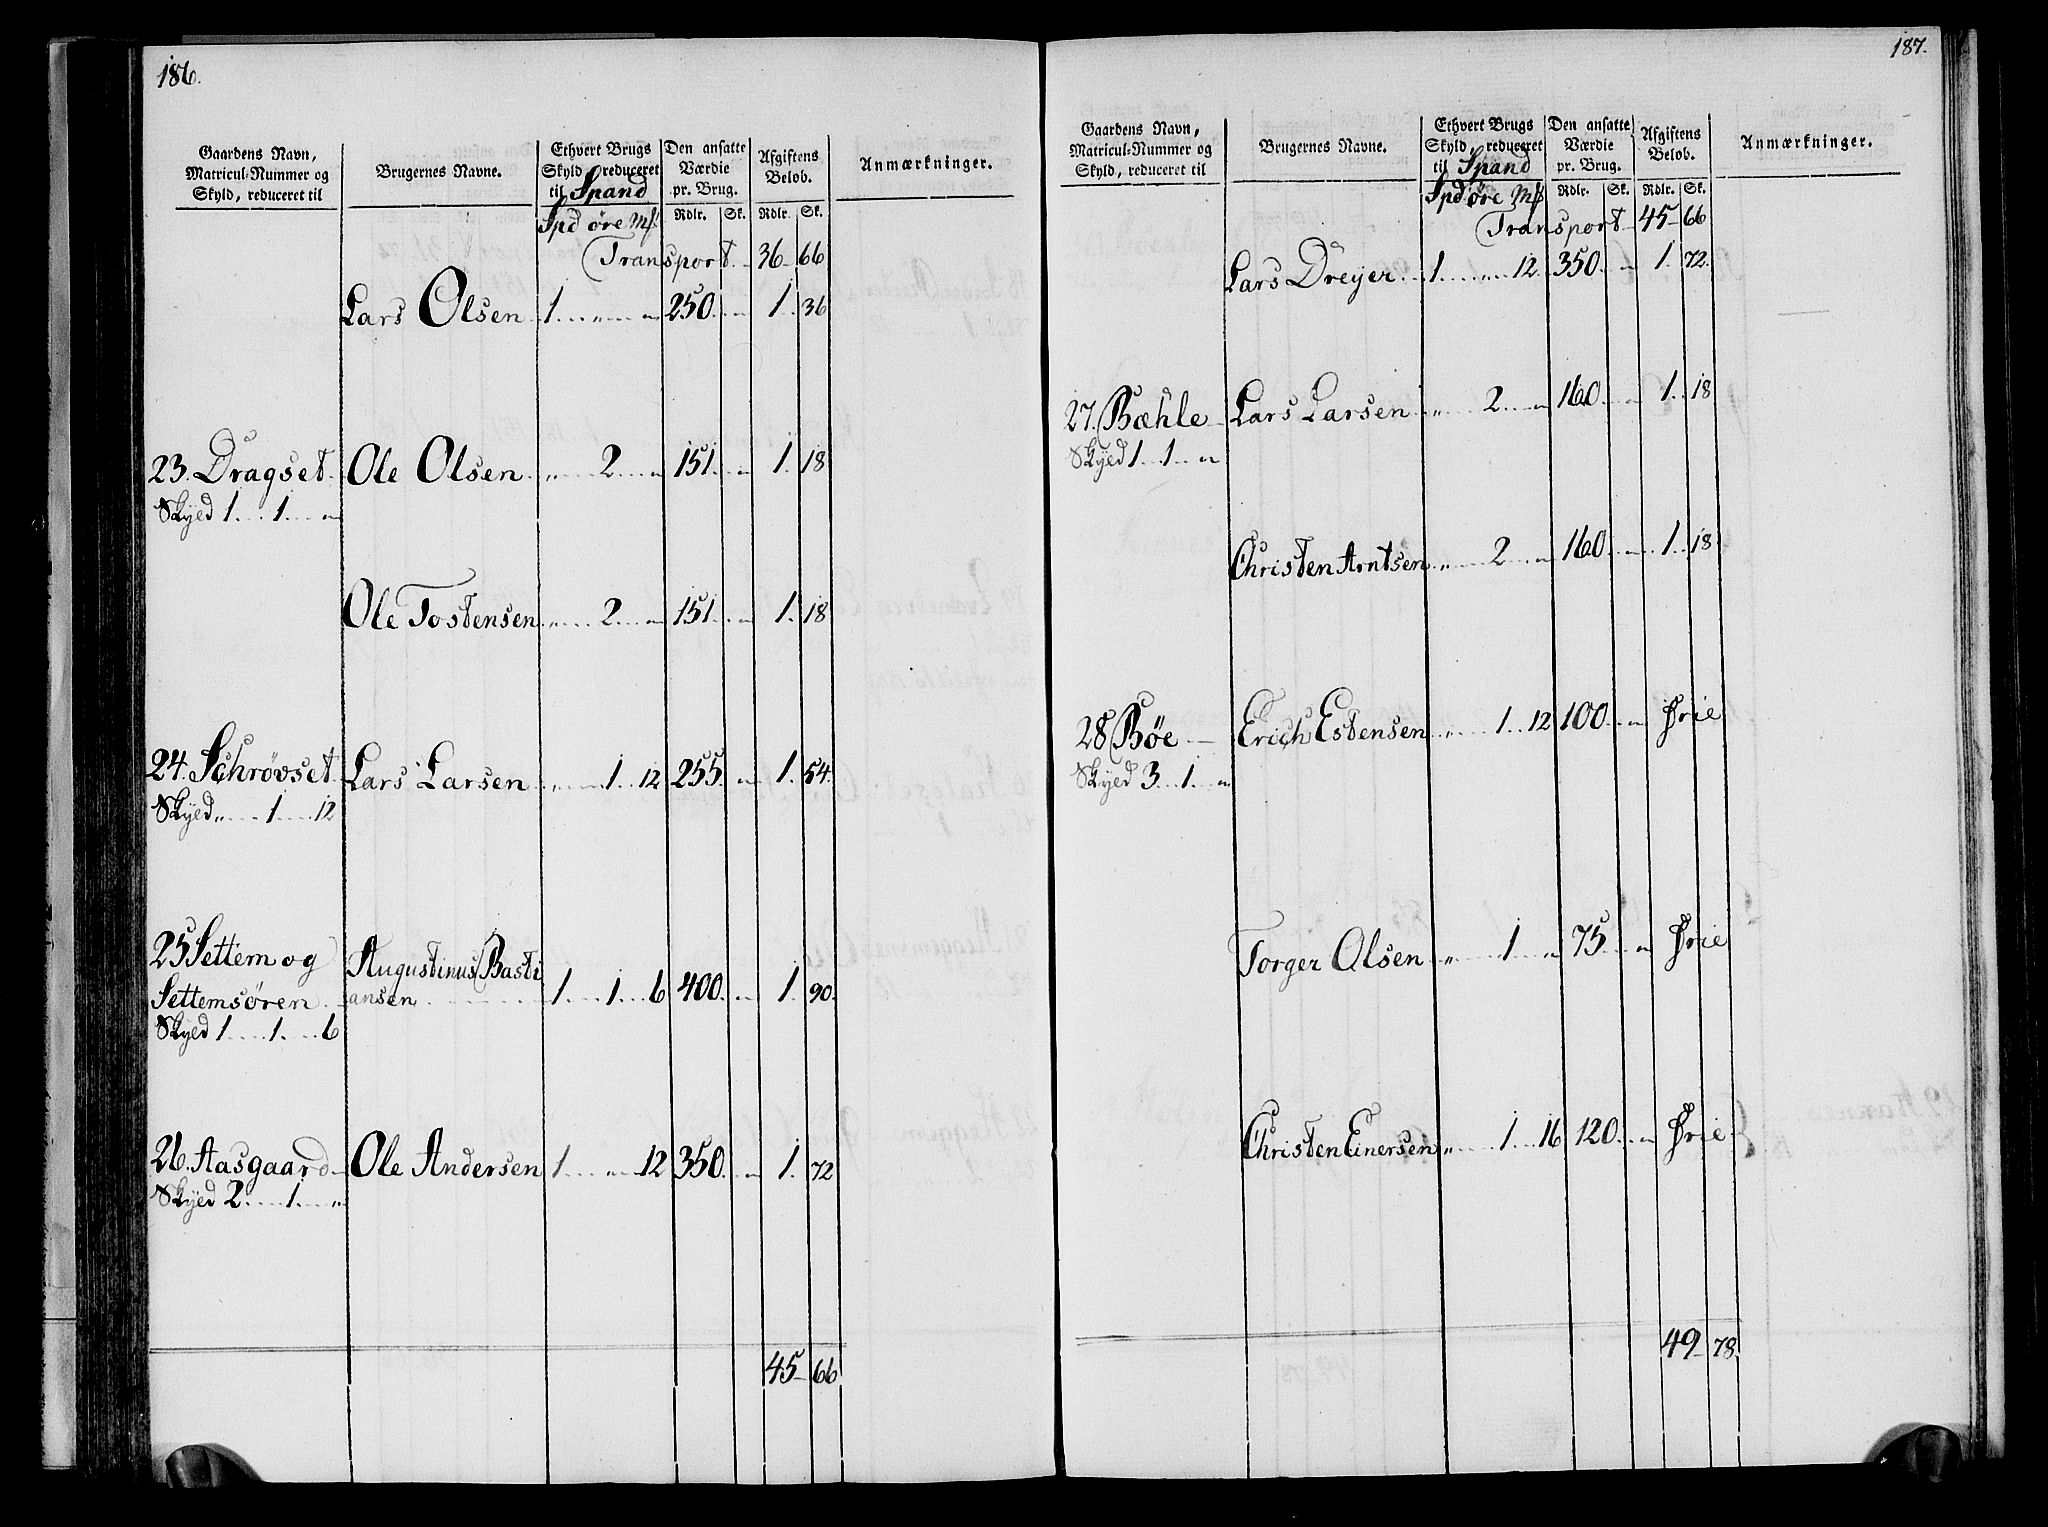 186.
Gaardens Navn, Matricul-Nummer og Skyld, reduceret til | Brugernes Navne. | Ethvert Brugs Skyld reduceret til Spand | Den ansatte Værdie pr. Brug. | Afgiftens Beløb. | Anmærkninger.
Spd øre M# | Rdlr. | Sk. | Rdlr. | Sk.
Transport 36 66
Lars Olsen 1 " " 250 " 1 36
23. Dragset Ole Olsen " 2 " 151 " 1 18
Skyed 1 1 "
Ole Tostensen " 2 " 151 " 1 18
24. Schrøvset Lars Larsen " 1 12 255 " 1 54
Skyed " 1 12
25 Settem og Augustinus Basti
Settemsøren ansen 1 1 6 400 " 1 90
Skyed 1 1 6
26. Aasgaard Ole Andersen 1 " 12 350 " 1 72
Skyed 2 1 "
45 66
187.
Gaardens Navn, Matricul-Nummer og Skyld, reduceret til | Brugernes Navne. | Ethvert Brugs Skyld reduceret til Spand | Den ansatte Værdie pr. Brug. | Afgiftens Beløb. | Anmærkninger.
Spd øre M# | Rdlr. | Sk. | Rdlr. | Sk.
Transport 45 66
Lars Dreyer 1 " 12 350 " 1 72
27. Bæhle Lars Larsen " 2 " 160 " 1 18
Skyed 1 1 "
Christen Arntsen " 2 " 160 " 1 18
28 Bøe Erich Estensen " 1 12 100 " Frie
Skyed 3 1 "
Torger Olsen " 1 " 75 " Frie
Christen Einersen " 1 16 120 " Frie
49 78